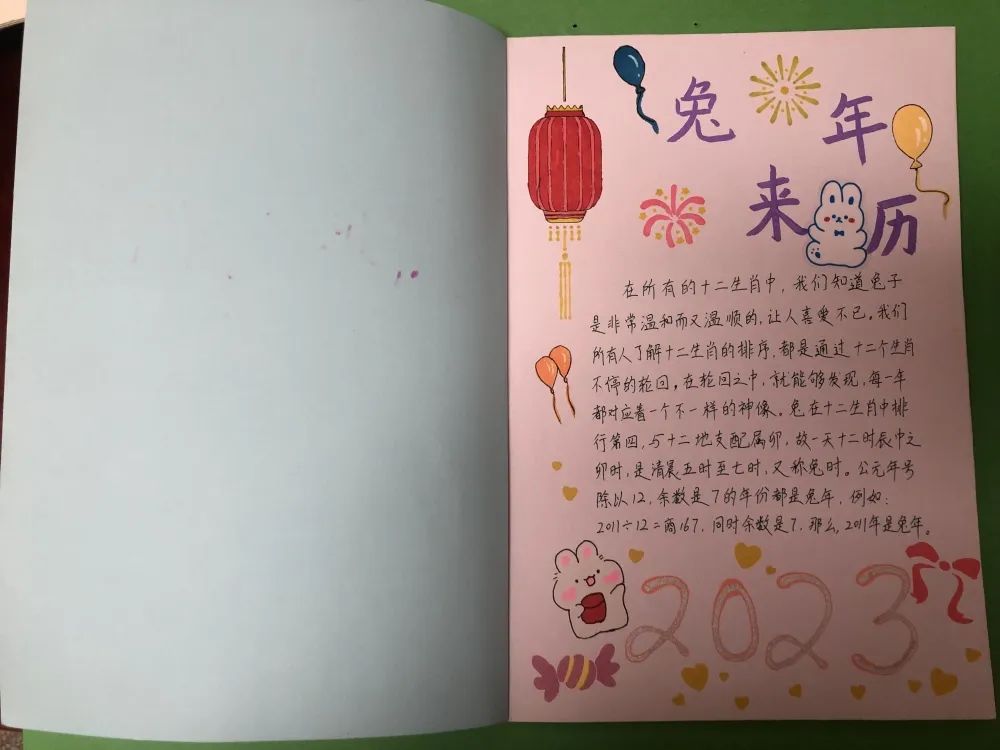 兔年
来历
在所有的十二生肖中，我们知道兔子
是非常温和而又温顺的，让人喜爱不已。我们
所有人了解十二生肖的排序，都是通过十二个生肖
不停的轮回。在轮回之中，就能够发现，每一年
都对应着一个不一样的神像。兔在十二生肖中排
行第四，与十二地支配属卯，故一天十二时辰中之
卯时，是清晨五时至七时，又称兔时。公元年号
除以12，余数是7的年份都是兔年，例如：
2011÷12=商167，同时余数是7，那么，2011年是兔年。
2023